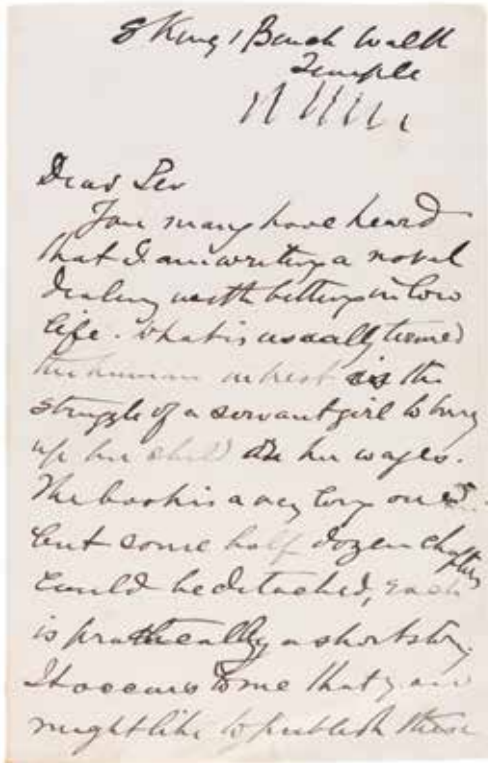 8 King's Bench Walk
Temple
Dear Sir
You may have heard
that I am writing a novel
dealing with betting in low
life. What is usually termed
the human interest is the
struggle of a servant girl to bring
up her child on her wages.
The book is a very long one
but some half dozen chapters
could be detached, each
is practically a short story.
It occurs to me that you
might like to publish these